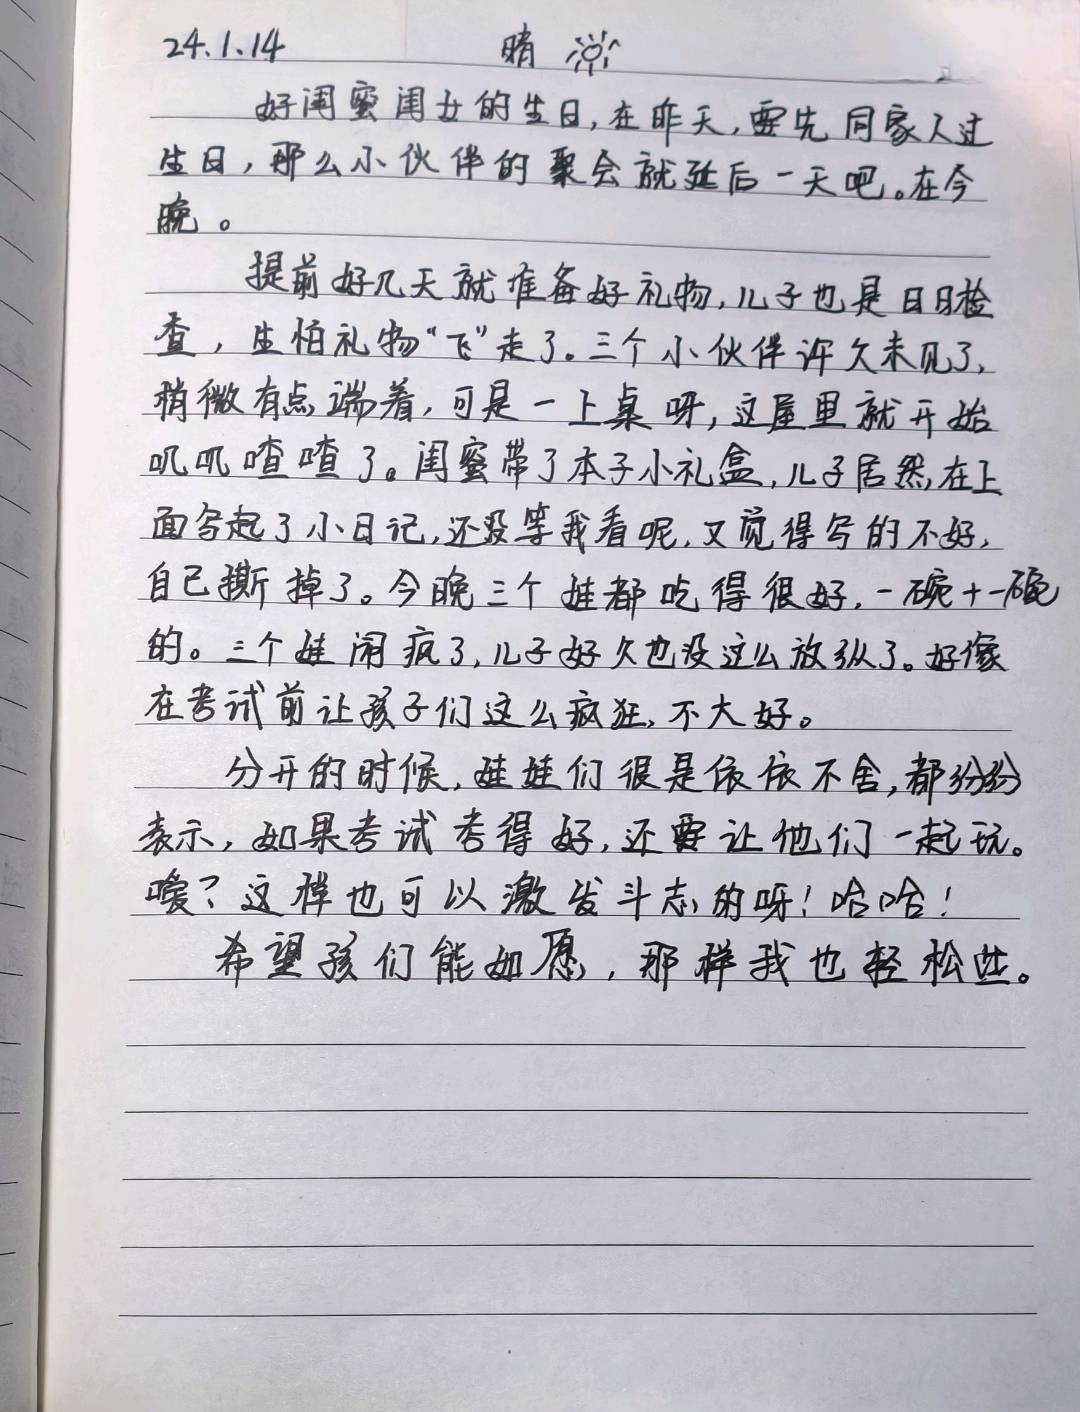 24.1.14 晴
好闺蜜闺女的生日,在昨天,要先同家人过
生日,那么小伙伴的聚会就延后一天吧。在今
晚。
提前好几天就准备好礼物,儿子也是日日检
查,生怕礼物“飞”走了。三个小伙伴许久未见了,
稍微有点端着,可是一上桌呀,这屋里就开始
叽叽喳喳了。闺蜜带了本子小礼盒,儿子居然在上
面写起了小日记,还没等我看呢,又觉得写的不好,
自己撕掉了。今晚三个娃都吃得很好,一碗+一碗
的。三个娃闹疯了,儿子好久也没这么放纵了。好像
在考试前让孩子们这么疯狂,不大好。
分开的时候,娃娃们很是依依不舍,都纷纷
表示,如果考试考得好,还要让他们一起玩。
嗳?这样也可以激发斗志的呀!哈哈!
希望孩们能如愿,那样我也轻松些。